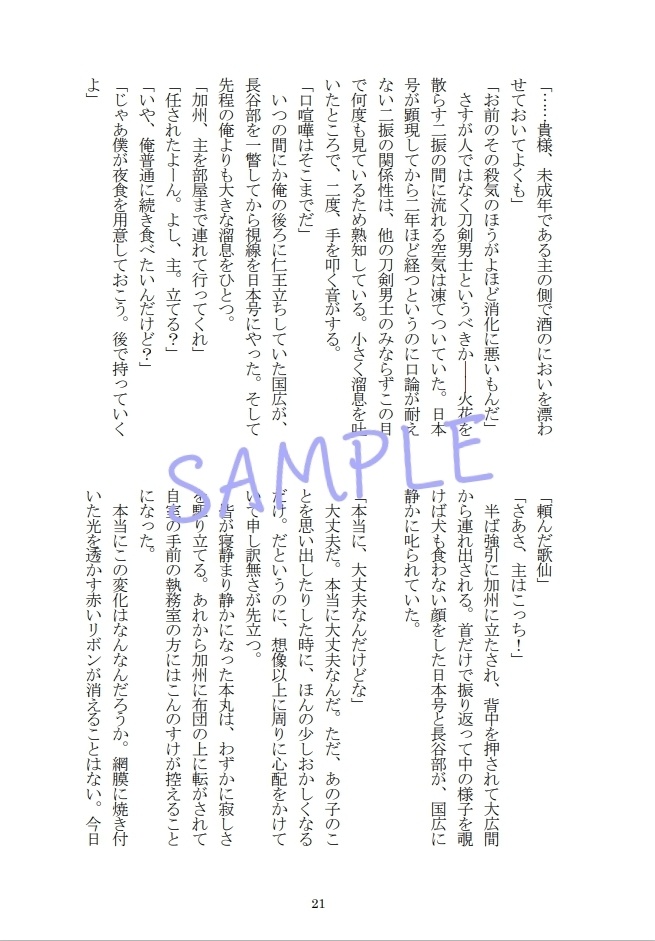 「……貴様、未成年である主の側で酒のにおいを漂わ
せておいてよくも」
「お前のその殺気のほうがよほど消化に悪いもんだ」
　さすが人ではなく刀剣男士というべきか――火花を
散らす二振の間に流れる空気は凍てついていた。日本
号が顕現してから二年ほど経つというのに口論が耐え
ない二振の関係性は、他の刀剣男士のみならずこの目
で何度も見ているため熟知している。小さく溜息を吐
いたところで、二度、手を叩く音がする。
「口喧嘩はそこまでだ」
　いつの間にか俺の後ろに仁王立ちしていた国広が、
長谷部を一瞥してから視線を日本号にやった。そして
先程の俺よりも大きな溜息をひとつ。
「加州、主を部屋まで連れて行ってくれ」
「任されたよーん。よし、主。立てる？」
「いや、俺普通に続き食べたいんだけど？」
「じゃあ僕が夜食を用意しておこう。後で持っていく
よ」
「頼んだ歌仙」
「さあさ、主はこっち！」
　半ば強引に加州に立たされ、背中を押されて大広間
から連れ出される。首だけで振り返って中の様子を覗
けば犬も食わない顔をした日本号と長谷部が、国広に
静かに叱られていた。
「本当に、大丈夫なんだけどな」
　大丈夫だ。本当に大丈夫なんだ。ただ、あの子のこ
とを思い出したりした時に、ほんの少しおかしくなる
だけ。だというのに、想像以上に周りに心配をかけて
いて申し訳無さが先立つ。
　皆が寝静まり静かになった本丸は、わずかに寂しさ
を駆り立てる。あれから加州に布団の上に転がされて
自室の手前の執務室の方にはこんのすけが控えること
になった。
　本当にこの変化はなんなんだろうか。網膜に焼き付
いた光を透かす赤いリボンが消えることはない。今日
21
SAMPLE